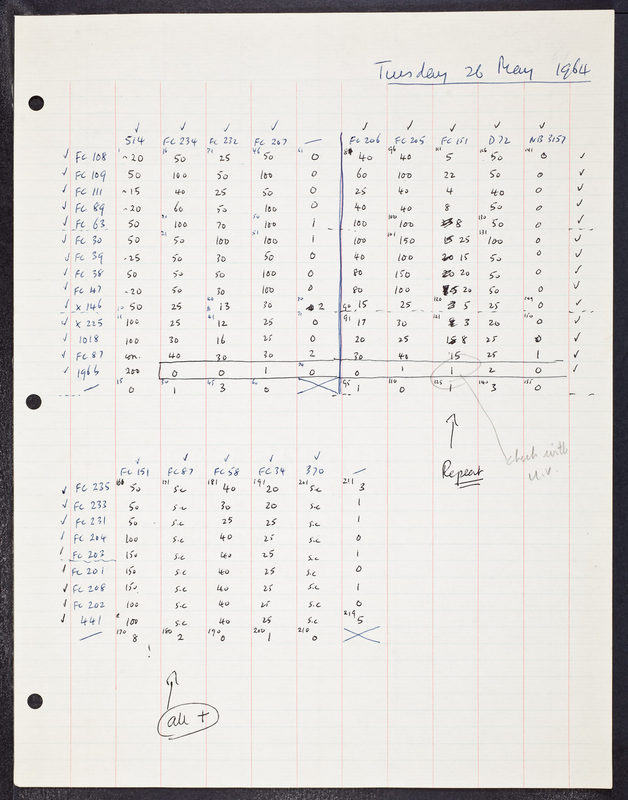 Tuesday 26 May 1964
✓ ✓ ✓ ✓ ✓ ✓ ✓ ✓ ✓
514 FC 234 FC 232 FC 207 — FC 206 FC 205 FC 151 D 72 NB 3157
✓ FC 108 ~20 50 25 50 0 40 40 5 50 0 ✓
✓ FC 109 50 100 50 100 0 60 100 22 50 0 ✓
✓ FC 111 ~15 40 25 50 0 25 40 4 40 0 ✓
✓ FC 89 ~20 60 50 100 0 40 40 8 50 0 ✓
✓ FC 63 50 100 70 100 1 100 100 8 50 0 ✓
✓ FC 30 50 50 100 100 1 100 150 25 100 0 ✓
✓ FC 39 ~25 50 30 50 0 40 100 15 50 0 ✓
✓ FC 38 50 50 50 100 0 80 150 20 50 0 ✓
✓ FC 47 ~20 50 30 100 0 80 100 20 50 0 ✓
✓ X 146 50 25 13 30 2 15 25 5 25 0 ✓
✓ X 225 100 25 12 25 0 17 30 3 20 0 ✓
✓ 1018 100 30 16 25 0 20 25 8 25 0 ✓
✓ FC 87 con. 40 30 30 2 30 40 15 25 1 ✓
✓ 1966 200 0 0 1 0 0 1 1 2 0 ✓
— 0 1 3 0 1 0 1 3 0
Repeat
check with
u.v.
✓ ✓ ✓ ✓ ✓
FC 151 FC 87 FC 58 FC 34 370 —
✓ FC 235 50 s.c 40 20 s.c 3
✓ FC 233 50 s.c 30 20 s.c 1
✓ FC 231 50 s.c 25 25 s.c 1
✓ FC 204 100 s.c 40 25 s.c 0
✓ FC 203 150 s.c 40 25 s.c 1
✓ FC 201 150 s.c 40 25 s.c 0
✓ FC 208 150 s.c 40 25 s.c 1
✓ FC 202 100 s.c 40 25 s.c 0
✓ 441 100 s.c 40 25 s.c 5
— 8 2 0 1 0
!
all +